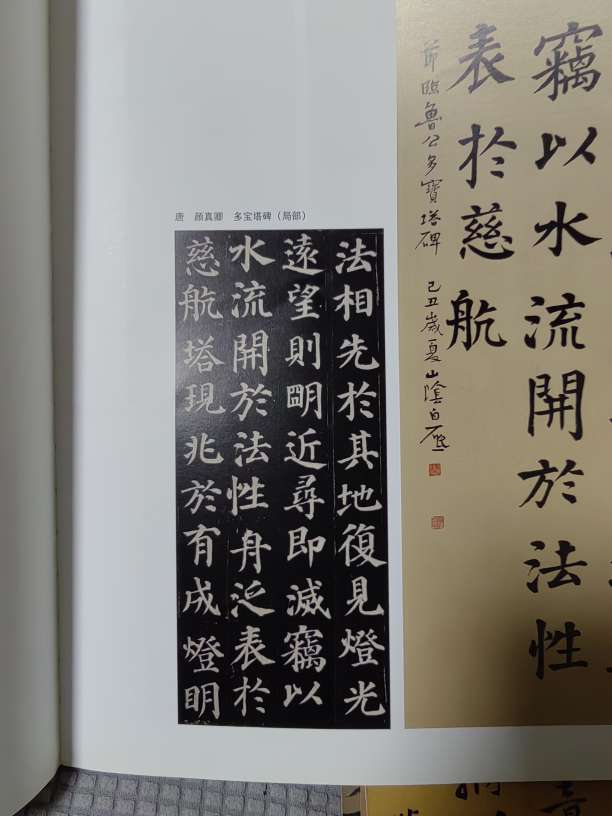 唐 颜真卿 多宝塔碑（局部）
法相先於其地復見燈光
遠望則明近尋即滅竊以
水流開於法性舟泛表於
慈航塔現兆於有成燈明
竊以水流開於法性
表於慈航
節臨魯公多寶塔碑 己丑歲夏山陰白砥